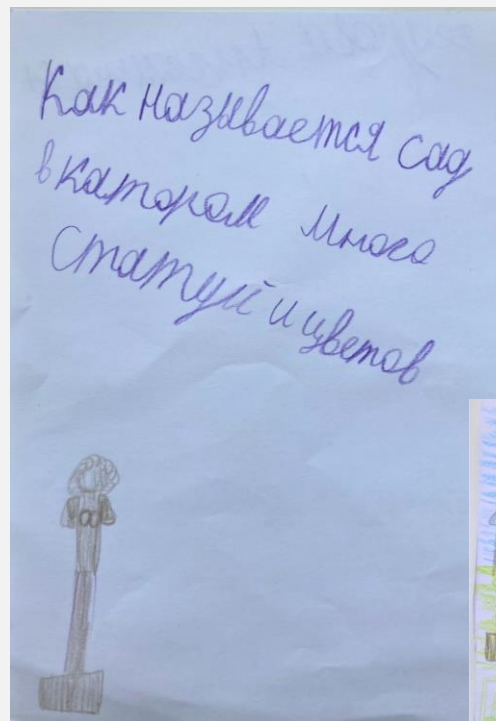 Как называется сад
в катором много
статуй и цветов